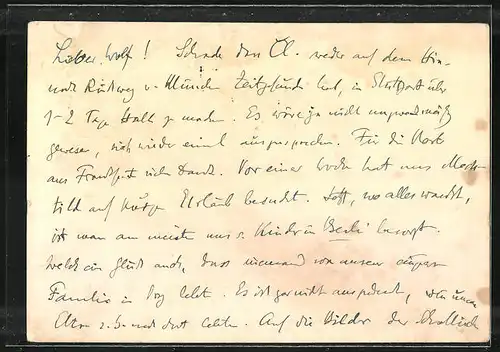 Lieber Wolf! Schade dass Cl. weder auf dem Hin-
noch Rückweg v. München Zeit gefunden hat, in Stuttgart für
1-2 Tage Halt zu machen. Es wäre ja nicht unzweckmäßig
gewesen, sich wieder einmal auszusprechen. Für die Karte
aus Frankfurt vielen Dank. Vor einer Woche hat uns
auf Urlaub besucht. Jetzt, wo alles wankt,
ist man am meisten um s. Kinder in Berlin besorgt.
Welch ein Glück auch, dass niemand von unserer engeren
Familie in lebt. Es ist gar nicht auszudenken, wenn unsere
z.B. noch dort lebten. Auf die Bilder der